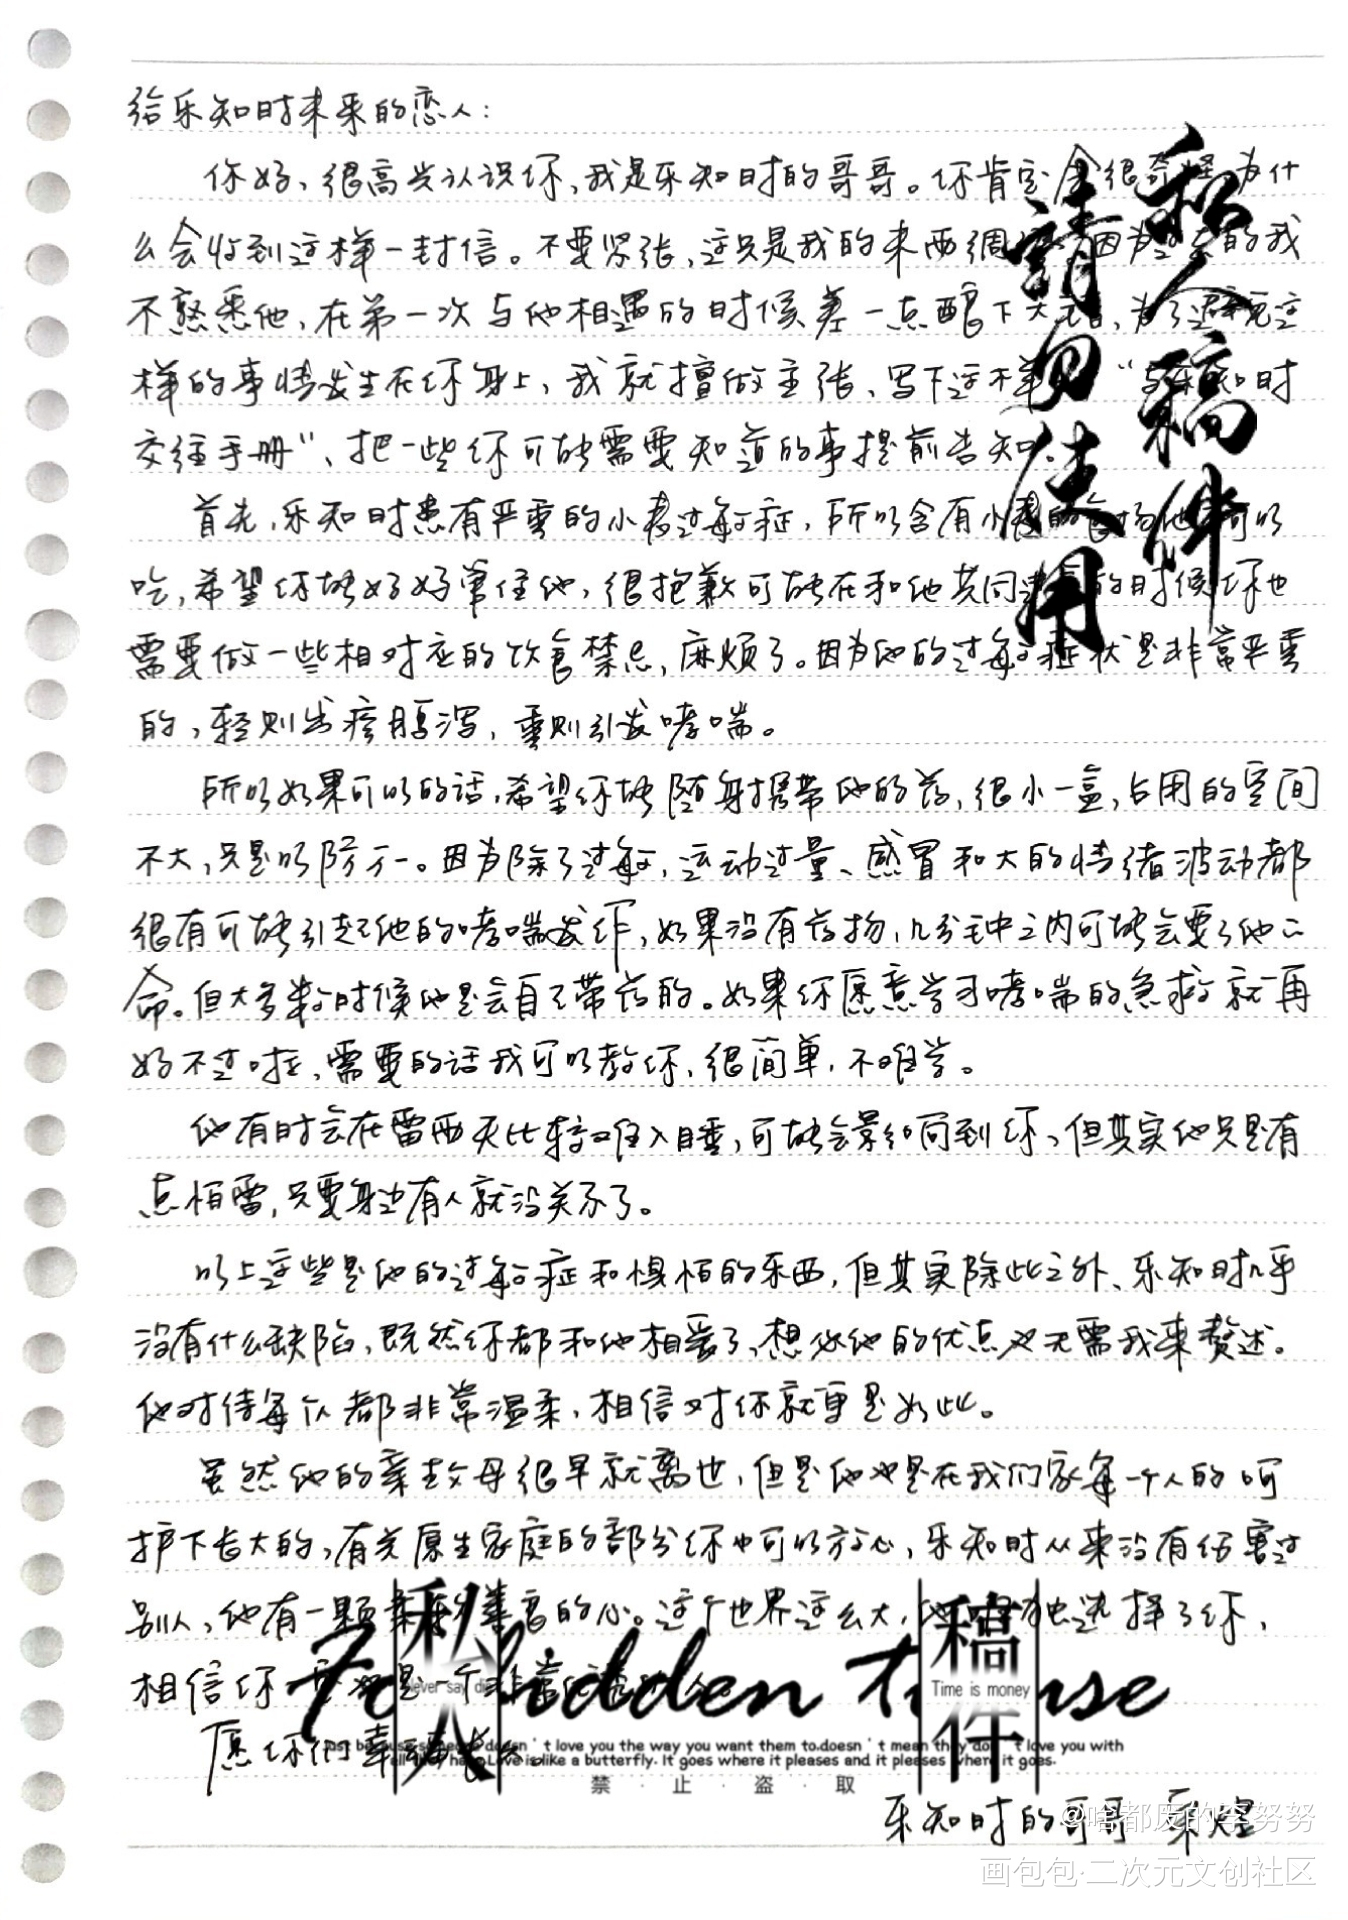 给乐知时未来的恋人：
你好，很高兴认识你，我是乐知时的哥哥。你肯定会很奇怪，为什
么会收到这样一封信。不要紧张，这只是我的未雨绸 因为 的我
不熟悉他，在第一次与他相遇的时候差一点酿下大 ，为了避免这
样的事情发生在你身上，我就擅做主张，写下这 “与乐知时
交往手册”，把一些你可能需要知道的事提前告知
首先，乐知时患有严重的小麦过敏症，所以含有小麦的食物他 可以
吃，希望你能好好管住他，很抱歉可能在和他共同 的时候你也
需要做一些相对应的饮食禁忌，麻烦了。因为他的过敏症状是非常严重
的，轻则出疹腹泻，重则引发哮喘。
所以如果可以的话，希望你能随身携带他的药，很小一盒，占用的空间
不大，只是以防万一。因为除了过敏，运动过量、感冒和大的情绪波动都
很有可能引起他的哮喘发作，如果没有药物，几分钟之内可能会要了他的
命。但大多数时候他是会自己带药的。如果你愿意学习哮喘的急救就再
好不过啦，需要的话我可以教你，很简单，不难学。
他有时会在雷雨天比较难入睡，可能会影响到你，但其实他只是有
点怕雷，只要身边有人就没关系了。
以上这些是他的过敏症和惧怕的东西，但其实除此之外、乐知时几乎
没有什么缺陷，既然你都和他相爱了，想必他的优点也无需我来赘述。
他对待每个人都非常温柔，相信对你就更是如此。
虽然他的亲生父母很早就离世，但是他也是在我们家每一个人的呵
护下长大的，有关原生家庭的部分你也可以放心，乐知时从来没有伤害过
别人，他有一颗 善良的心。这个世界这么大， 选择了你，
相信你一 是一个非常
愿你们幸福
乐知时的哥哥 宋煜
私人稿件
請勿使用
私人
稿件
Forbidden to use
Never say die
Time is money
禁·止·盗·取
@啥都废的李努努
画包包·二次元文创社区